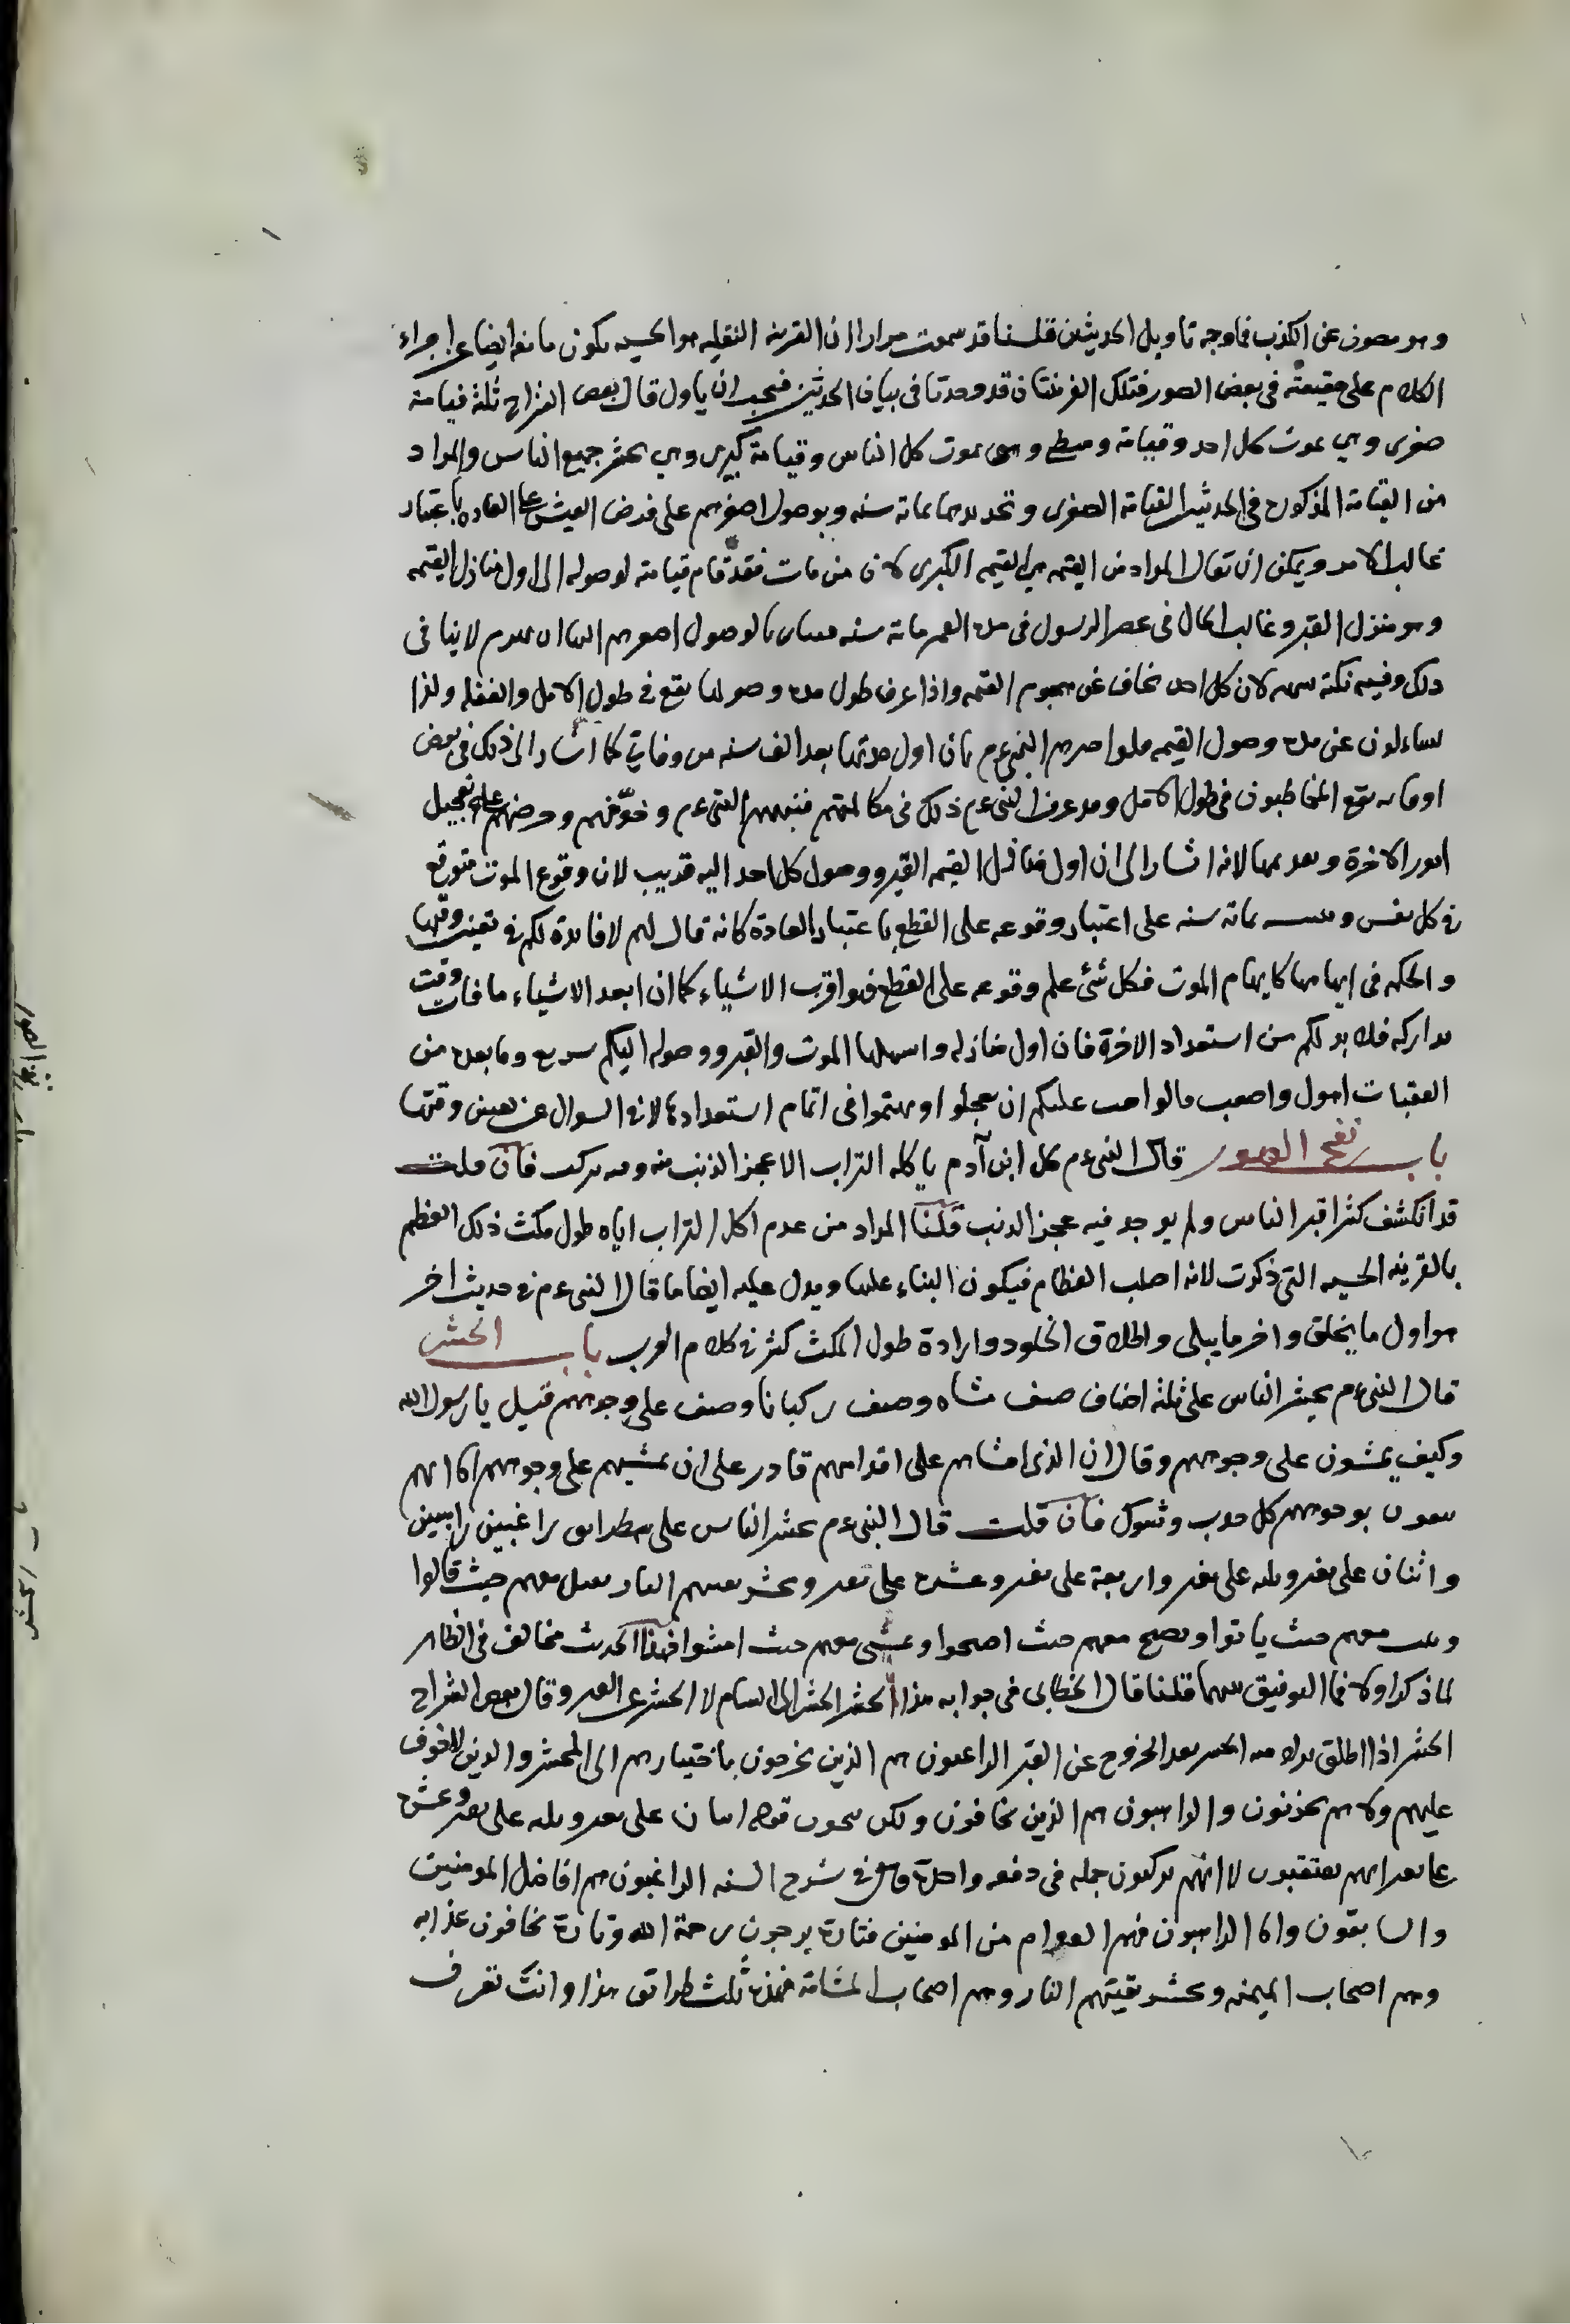 وهو مصون عن الكذب فما وجه تاويل الحديثين قلنا قد سمعت مرارا ان القرينه النقليه هو الحسيه يكون مانعا ايضا عن اجراء
الكلام على حقيقته فى بعض الصور فتلك القرينتان قد وجدتا فى بيان الحديثين فيجب ان ياول قال بعض الشراح ثلثة قيامة
صغرى وهي بموت كل احد وقيامة وسطى وهى بموت كل الناس وقيامة كبرى وهي بحشر جميع الناس والمراد
من القيامة المذكورة فى الحديثين القيامة الصغرى وتحديدها بمائة سنه وبوصول اصغرهم على فرض العيش على العاده باعتبار
غالب الامد ويمكن ان يقال المراد من القيمه هي القيمه الكبرى لان من مات فقد قام قيامته لوصوله الى اول منازل القيمه
وهو منزل القبر وغالب الحال فى عصر الرسول فى مدة العمر مائة سنه بالوصول اصغرهم لا ينافى
ذلك وفيه نكتة لان كل احد يخاف عن هجوم القيمه واذا عرف طول مدة وصولها يقع فى طول الامل والغفله ولذا
يساءلون عن مدة وصول القيمه فلو اخبرهم النبى عم بان اول مدتها بعد الف سنه من وفاتي كما اشار الى ذلك فى بعض
اوقاته يقع المخاطبون فى طول الامل وقد عرف النبى عم ذلك فى مكالمتهم فنبههم النبى عم وخوّفهم وحرضهم على تعجيل
امور الاخرة لانه اشار الى ان اول منازل القيمه القبر ووصول كل احد اليه قريب لان وقوع الموت متوقع
فى كل نفس بمائة سنه على اعتبار وقوعه على القطع باعتبار العادة كانه قال لهم لا فايدة لكم فى تعيين وقتها
والحكمه فى ابهامها كابهام الموت فكل شئ علم وقوعه على القطع فهو اقرب الاشياء كما ان ابعد الاشياء ما فات وقت
تداركه فلا بد لكم من استعداد الاخرة فان اول منازله واسهلها الموت والقبر ووصوله اليكم سريع وما بعده من
العقبات اهول واصعب فالواجب عليكم ان تعجلوا وتهتموا فى اتمام استعدادها لا فى السوال عن تعيين وقتها
باب نفخ الصور قال النبى عم كل ابن آدم ياكله التراب الا عجز الذنب منه وفيه يركب فان قلت
قد انكشف كثرا قبر الناس ولم يوجد فيه عجز الذنب قلنا المراد من عدم اكل التراب اياه طول مكث ذلك العظم
بالقرينه الحسيه التى ذكرت لانه اصلب العظام فيكون البناء عليها ويدل عليه ايضا ما قال النبى عم فى حديث اخر
هو اول ما يخلق واخر ما يبلى واطلاق الخلود وارادة طول المكث كثر فى كلام العرب باب الحشر
قال النبى عم يحشر الناس على ثلثة اصناف صنف مشاه وصنف ركبانا وصنف على وجوههم قيل يا رسول الله
وكيف يمشون على وجوههم وقال ان الذى امشاهم على اقدامهم قادر على ان يمشيهم على وجوههم اما انهم
يتقون بوجوههم كل حدب وشوك فان قلت قال النبى عم يحشر الناس على ثلث طرايق راغبين راهبين
واثنان على بعير وثلثه على بعير واربعة على بعير وعشرة على بعير ويحشر بقيتهم النار تقيل معهم حيث قالوا
وتبيت معهم حيث باتوا وتصبح معهم حيث اصبحوا وتمشى معهم حيث امشوا فهذا الحديث مخالف فى الظاهر
لما ذكر اولا فما التوفيق بينهما قلنا قال الخطابى فى جوابه هذا الحشر الحشر الى الشام لا الحشر عن القبر وقال بعض الشراح
الحشر اذا اطلق يراد منه الحشر بعد الخروج عن القبر الراغبون هم الذين يخرجون باختيارهم الى المحشر والذين لا خوف
عليهم ولا هم يحزنون والراهبون هم الذين يخافون ولكن ينجون قوله اثنان على بعير وثلثه على بعير وعشرة
على بعير انهم يعتقبون لا انهم يركبون جمله فى دفعه واحدة وقال فى شرح السنه الراغبون هم افاضل المومنين
والسابقون واما الراهبون فهم العوام من المومنين فتارة يرجون رحمة الله وتارة يخافون عذابه
وهم اصحاب الميمنه ويحشر بقيتهم النار وهم اصحاب المشأمة فهذه ثلث طرائق هذا وانت تعرف
باب نفخ الصور